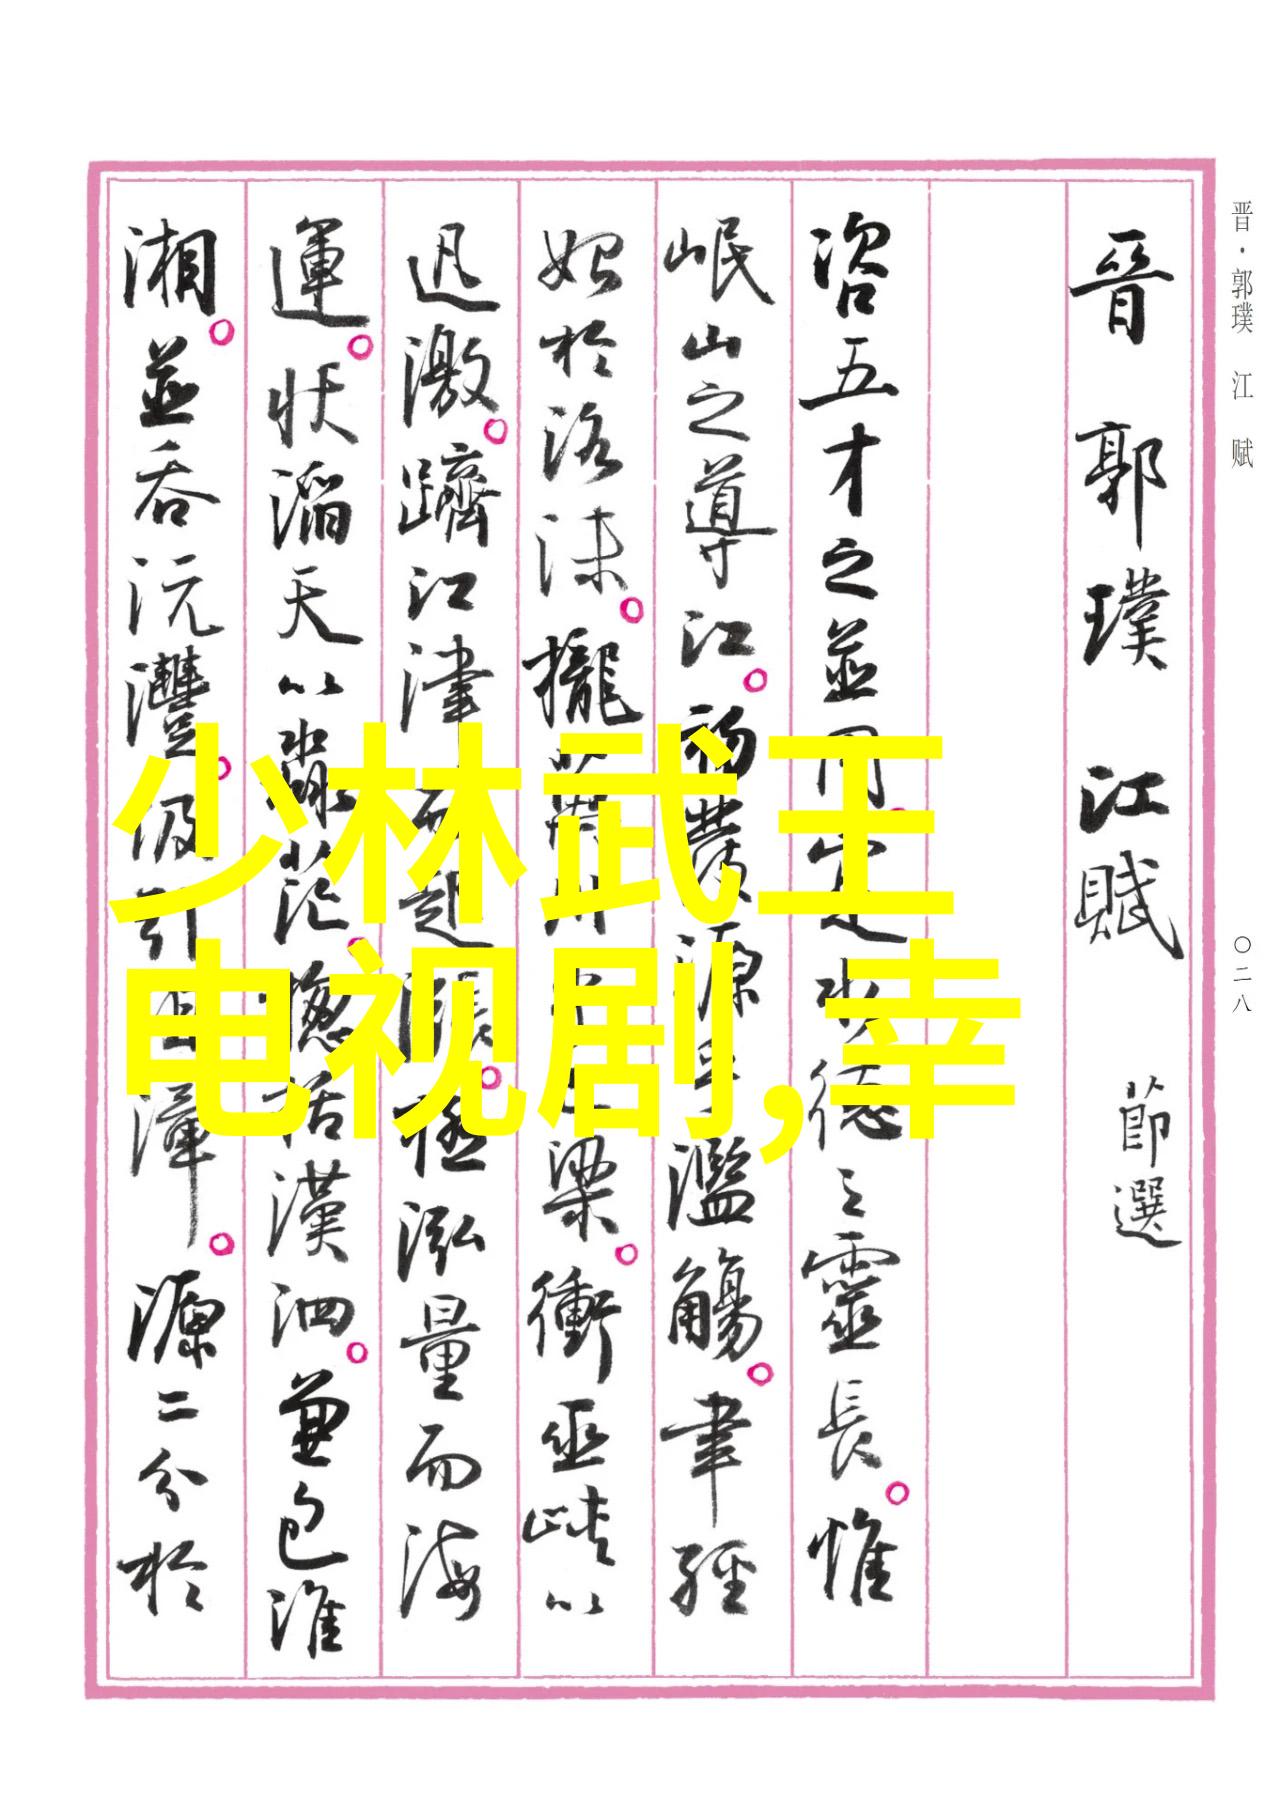 晋·郭璞 江 赋
〇二八
晉郭璞江賦 節選
咨五才之並用。寔水德之靈長。惟
岷山之導江。初發源乎濫觴。聿經
始於洛沬。攏萬川乎巴梁。衝巫峽以
迅激。躋江津而起漲。極泓量而海
運。狀滔天以淼茫。總括漢泗。兼包淮
湘。並吞沅澧。汲引沮漳。源二分於
少林武王
电视剧,幸